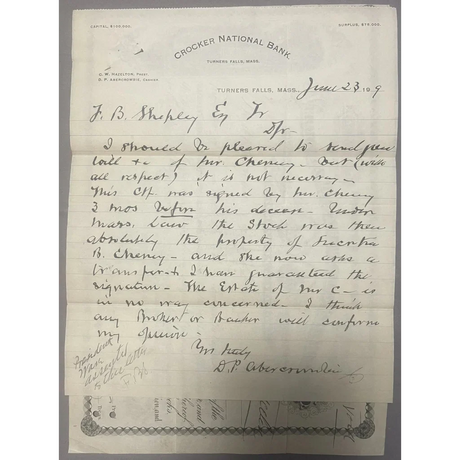 CAPITAL, $150,000.
SURPLUS, $75,000.
CROCKER NATIONAL BANK
TURNERS FALLS, MASS.
D. P. ABERCROMBIE, Cashier
TURNERS FALLS, MASS. June 23 1909
F. B. Shepley Esq Tr
Dr
I should be pleased to send you
will &c of Mr Cheney - but (with
all respect) it is not necessary -
This Ctf was signed by Mr. Cheney
3 mos before his decease - Under
Mass. Law the Stock was then
absolutely the property of
B. Cheney - and she now asks a
transfer & I have guaranteed the
signature - The Estate of Mr C - is
in no way concerned - I think
any Broker or Banker will confirm
my opinion -
Yrs truly
D. P. Abercrombie